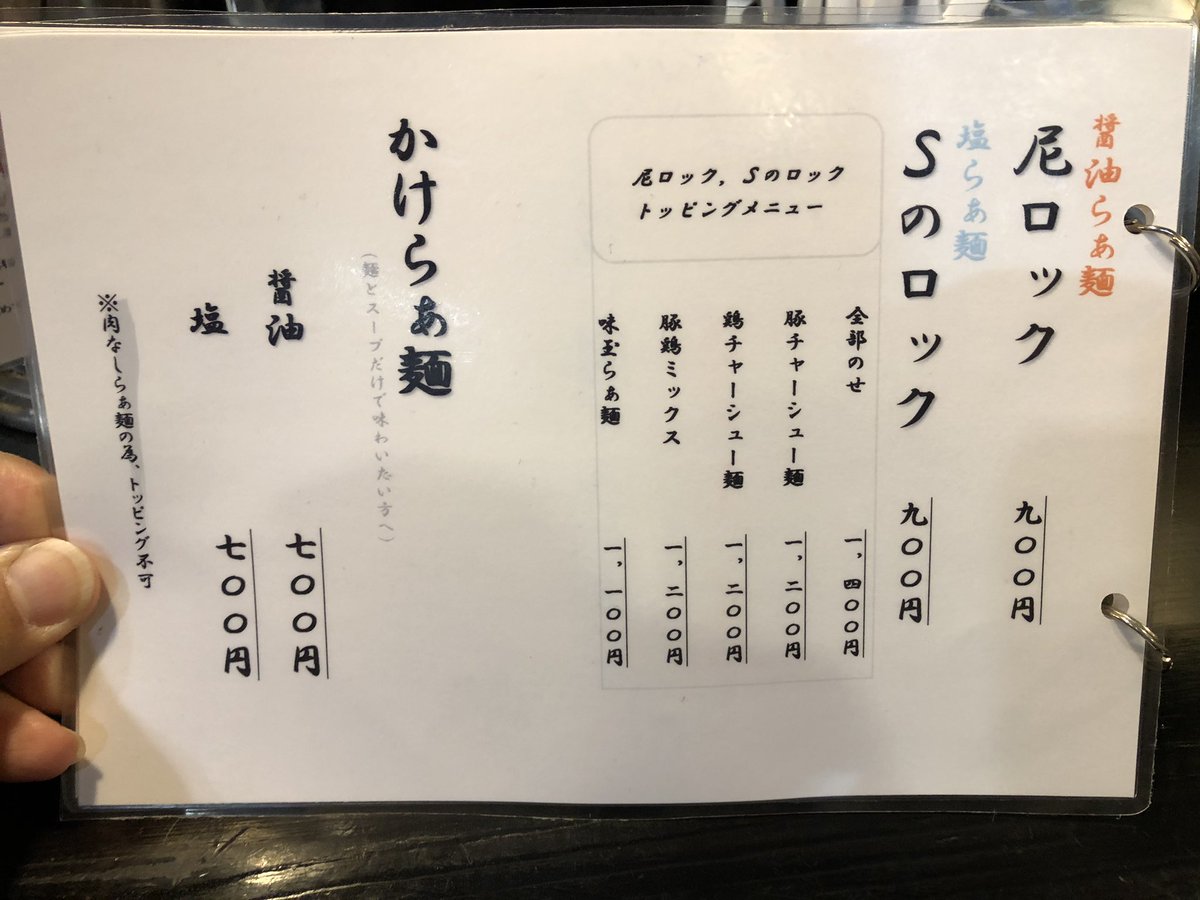 醤油らぁ麺
尼ロック 九〇〇円
塩らぁ麺
Sのロック 九〇〇円
尼ロック, Sのロック
トッピングメニュー
全部のせ 一, 四〇〇円
豚チャーシュー麺 一, 二〇〇円
鶏チャーシュー麺 一, 二〇〇円
豚鶏ミックス 一, 二〇〇円
味玉らぁ麺 一, 一〇〇円
かけらぁ麺
(麺とスープだけで味わいたい方へ)
醤油 七〇〇円
塩 七〇〇円
※肉なしらぁ麺の為、トッピング不可